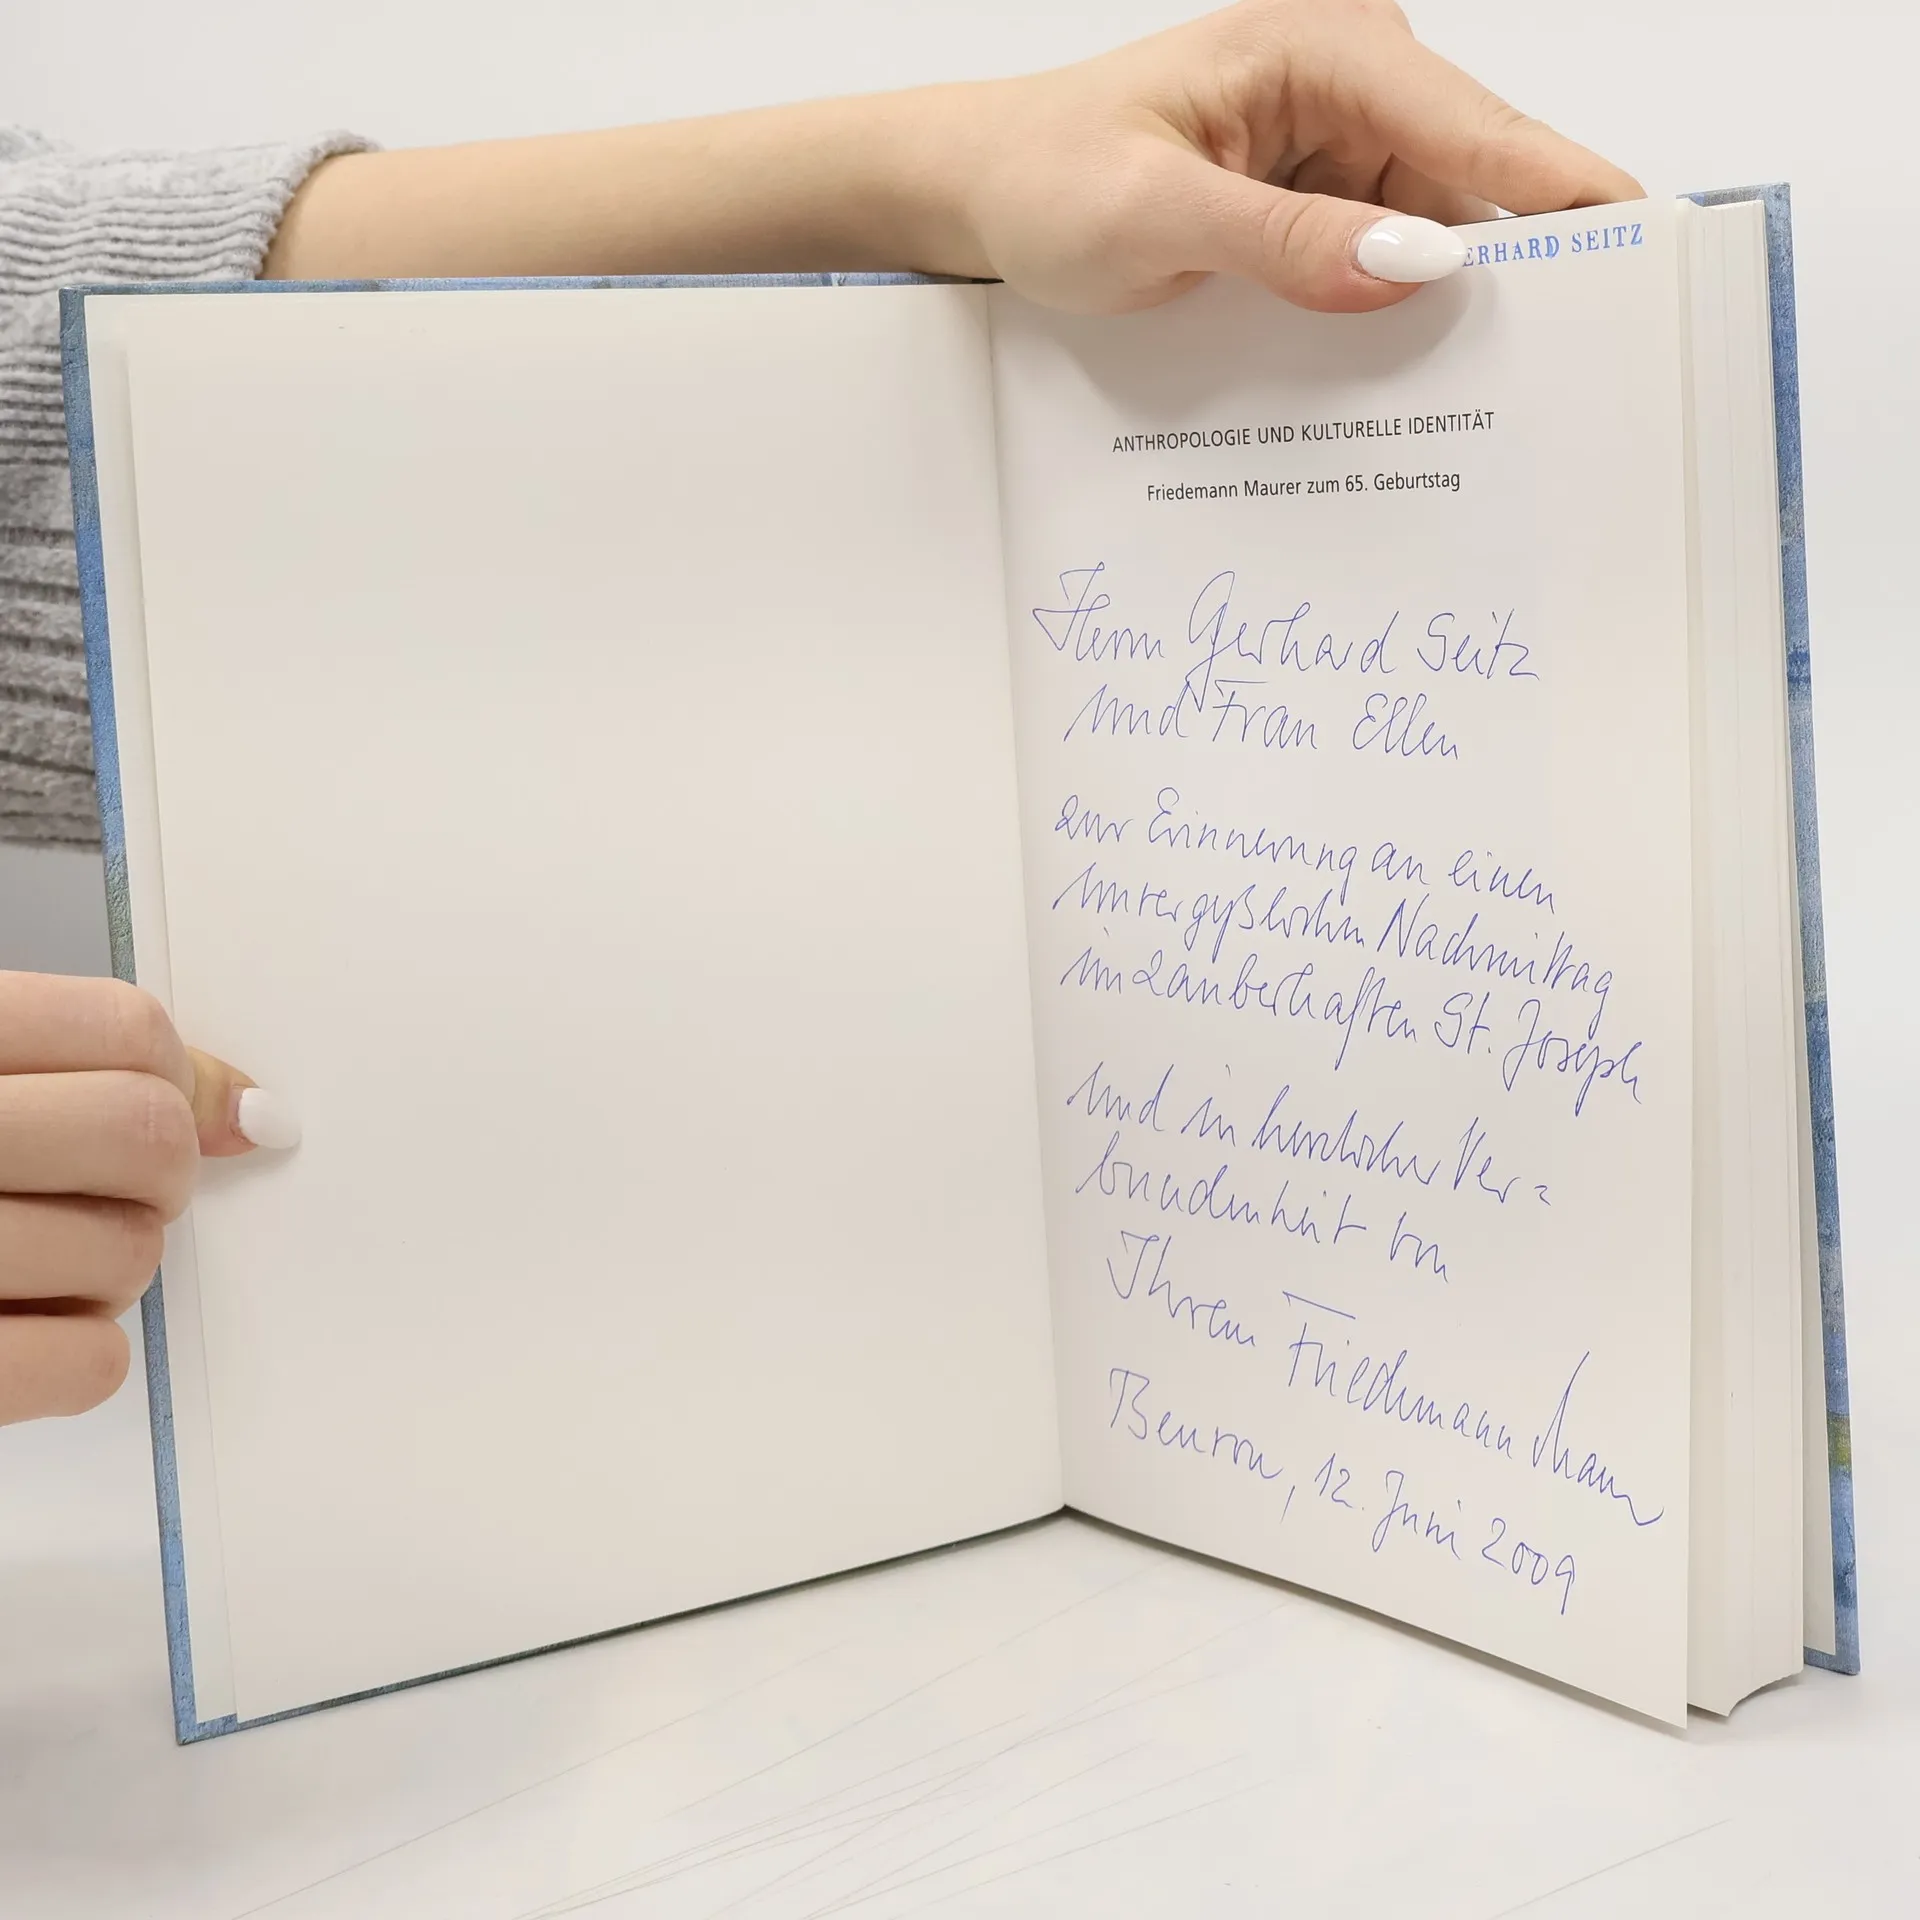 ERHARD SEITZ
ANTHROPOLOGIE UND KULTURELLE IDENTITÄT
Friedemann Maurer zum 65. Geburtstag
Herrn Gerhard Seitz
und Frau Ellen
zur Erinnerung an einen
unvergeßlichen Nachmittag
im zauberhaften St. Joseph
und in herzlicher Ver=
bundenheit von
Ihrem Friedemann Maurer
Beuron, 12. Juni 2009